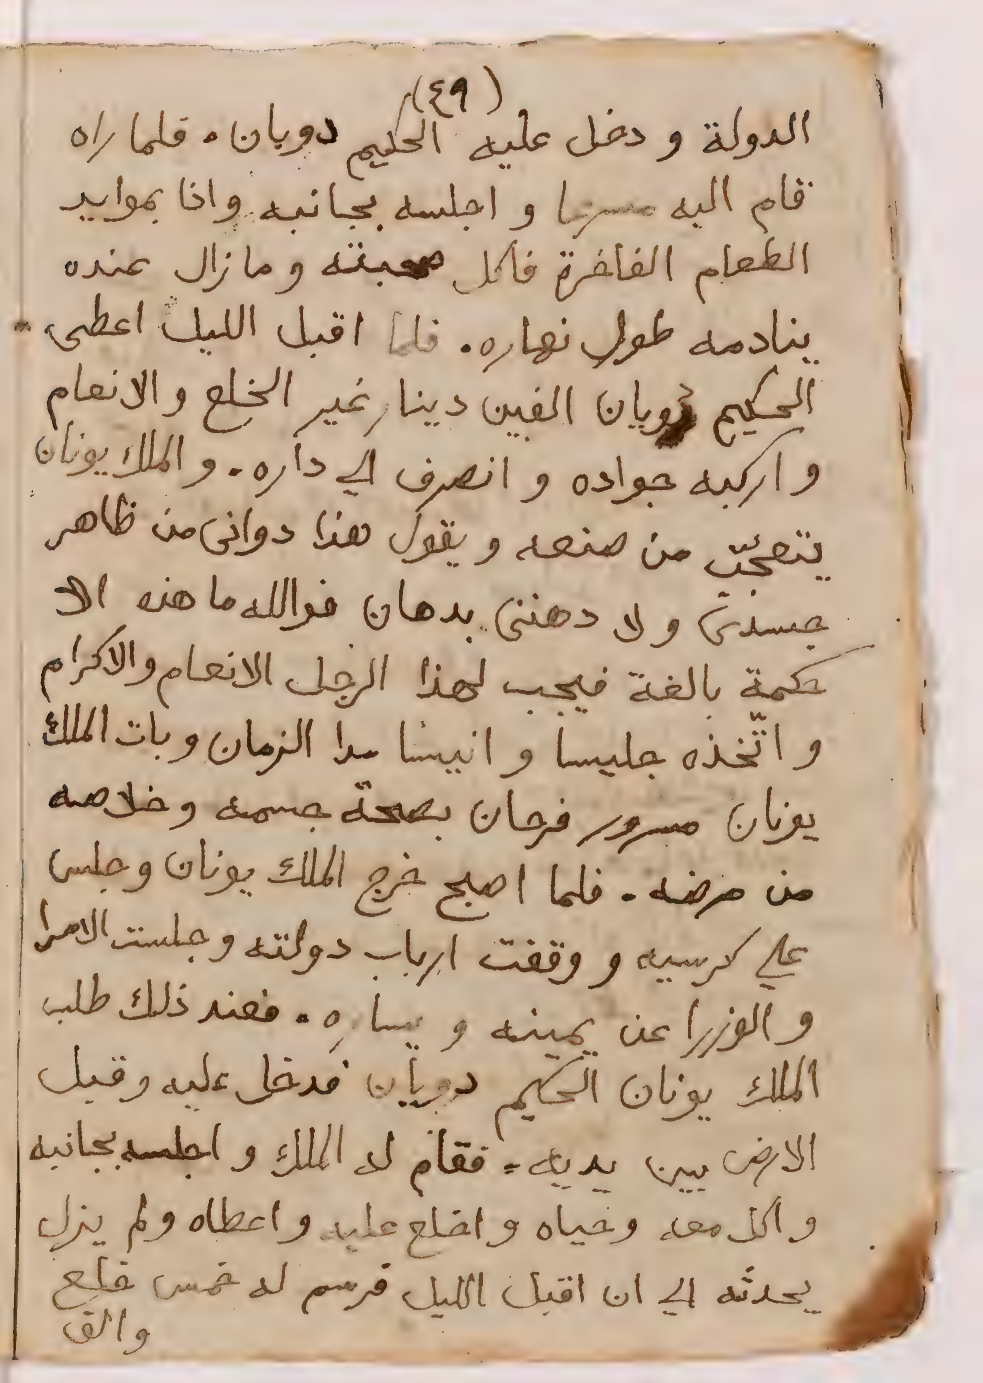 (٤٩)
الدولة و دخل عليه الحكيم دوبان . فلما راه
قام اليه مسرعا و اجلسه بجانبه واذا بموايد
الطعام الفاخرة فاكل صحبته و مازال عنده
ينادمه طول نهاره . فلما اقبل الليل اعطى
الحكيم دوبان الفين دينار غير الخلع و الانعام
و اركبه جواده و انصرف الي داره . و الملك يونان
يتعجّب من صنعه و يقول هذا دوانى من ظاهر
جسدى و لا دهننى بدهان فوالله ما هذه الا
حكمة بالغة فيجب لهذا الرجل الانعام والاكرام
و اتّخذه جليسا و انيسا مدا الزمان و بات الملك
يونان مسرور فرحان بصحة جسمه و خلاصه
من مرضه . فلما اصبح خرج الملك يونان وجلس
علي كرسيه و وقفت ارباب دولته و جلست الامرا
و الوزرا عن يمينه و يساره . فعند ذلك طلب
الملك يونان الحكيم دوبان فدخل عليه وقبل
الارض بين يديه . فقام له الملك و اجلسه بجانبه
و اكل معه وحياه و اخلع عليه و اعطاه ولم يزل
يحدثه الي ان اقبل الليل فرسم له خمس خلع
والف